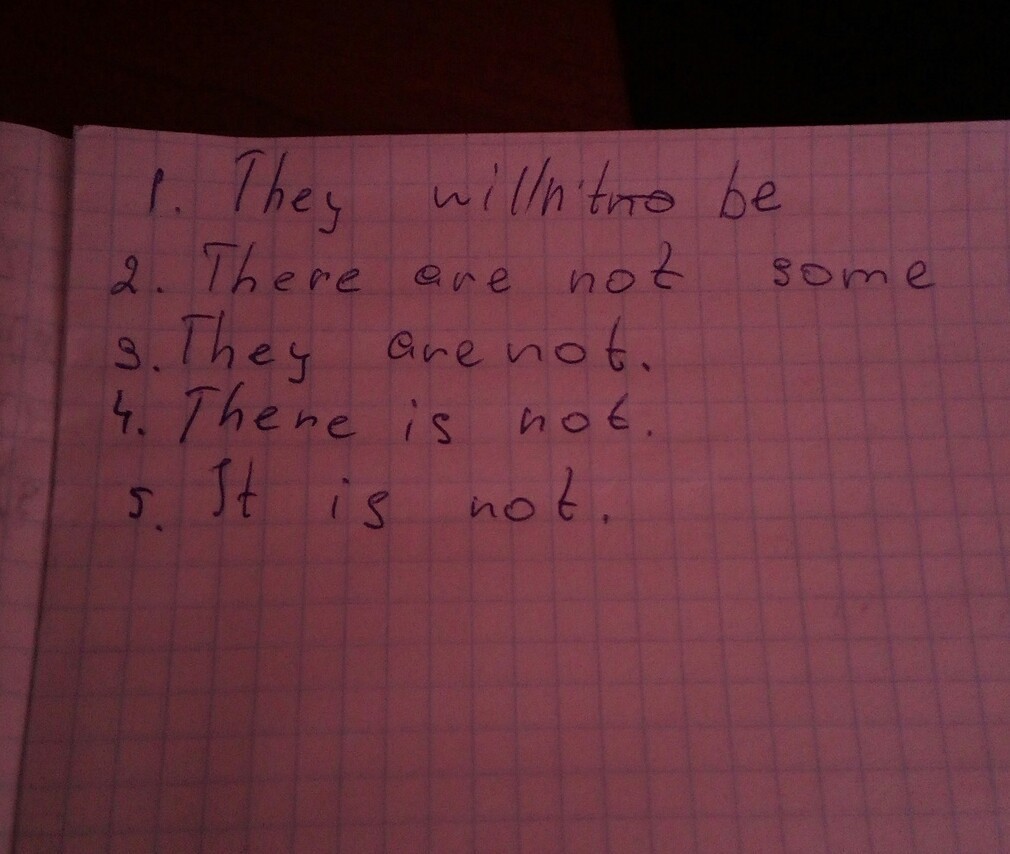 1. They willn't no be
2. There are not some
3. They are not.
4. There is not.
5. It is not.